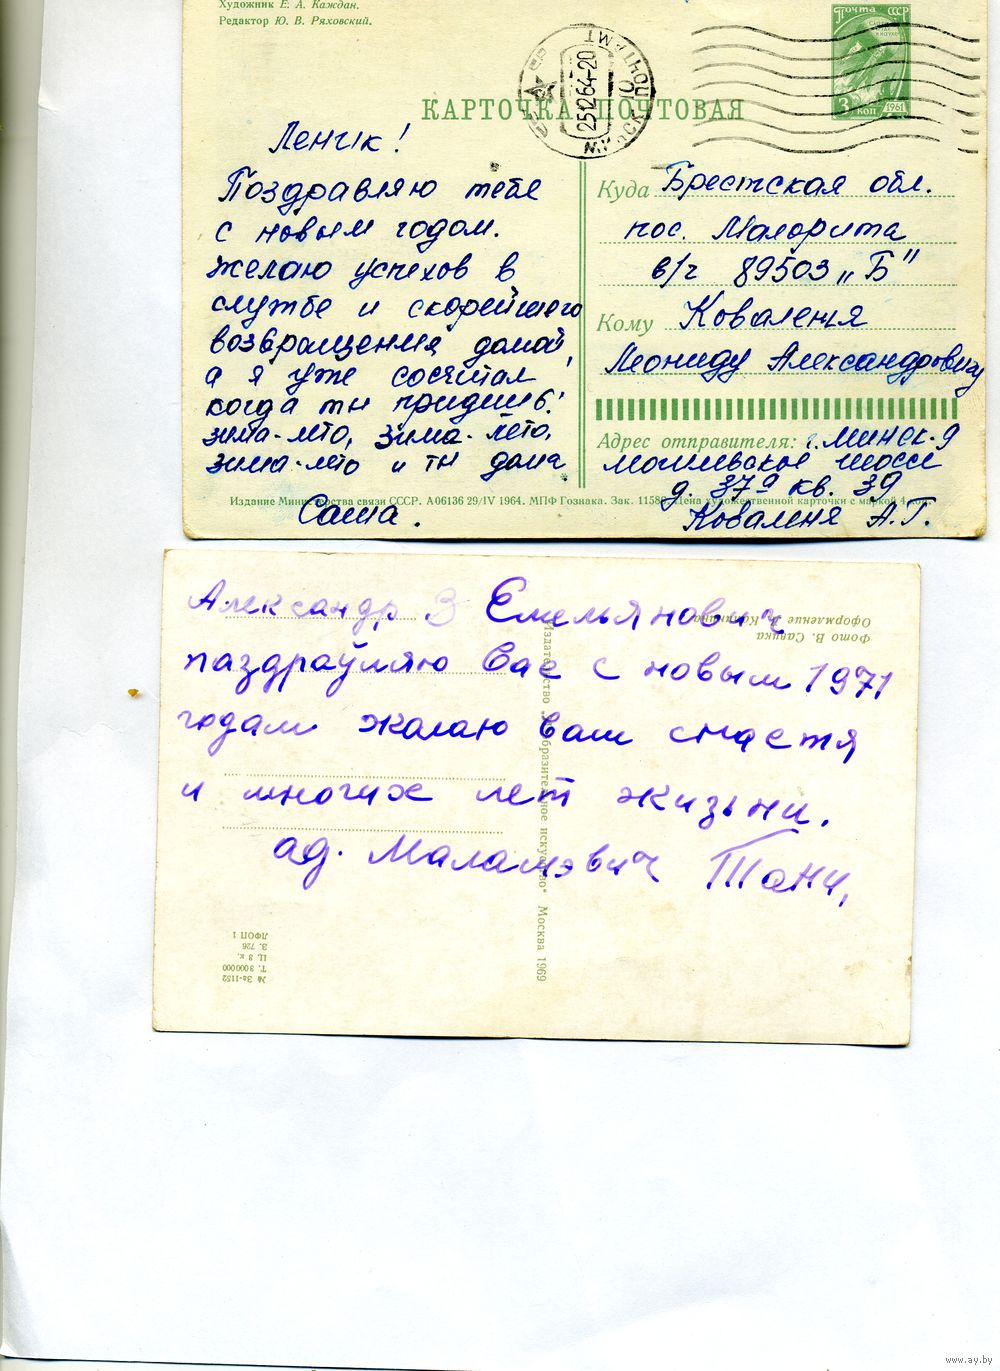 Художник Е. А. Каждан.
Редактор Ю. В. Ряховский.
почта СССР
3 коп 1961
25 12 64-20
МИНСК ПОЧТАМТ
КАРТОЧКА ПОЧТОВАЯ
Ленчік!
Поздравляю тебе
с новым годом.
желаю успехов в
службе и скорейшего
возвращения домой,
а я уже сосчитал
когда ты придишь!
зима-лето, зима-лето,
зима-лето и ты дома
Саша.
Куда Брестская обл.
пос. Малорита
в/ч 89503 „Б"
Кому Коваленя
Леониду Александровичу
Адрес отправителя: г. Минск-9
могилевское шоссе
д. 37а кв. 39
Коваленя А.Г.
Издание Министерства связи СССР. А06136 29/IV 1964. МПФ Гознака. Зак. 1158 Цена художественной карточки с маркой 4 коп.
Александр З Емельянович
паздраўляю Вас с новым 1971
годам жалаю вам счастя
и многих лет жизьни.
ад. Маламэвич Тани,
Фото В. Савика
Оформление
Издательство „Изобразительное искусство" Москва 1969
№ 3а-1152
Т. 8000000
Ц. 3 к.
З. 726
ЛФОП 1
www.ay.by